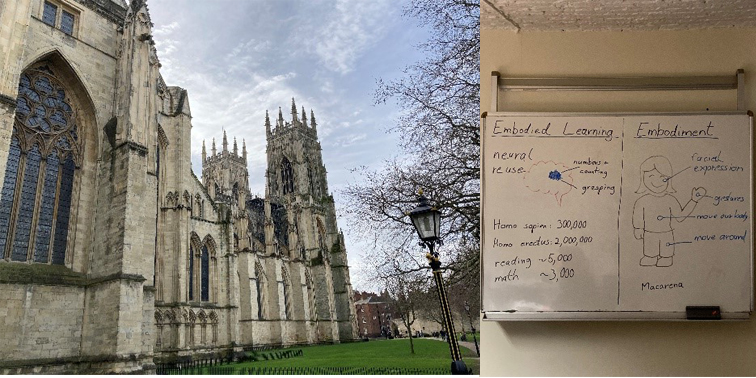 Embodied Learning
neural
reuse
numbers +
counting
grasping
Homo sapien: 300,000
Homo erectus: 2,000,000
reading ~5,000
math ~3,000
Embodiment
facial
expression
gestures
move our body
move around
Macarena